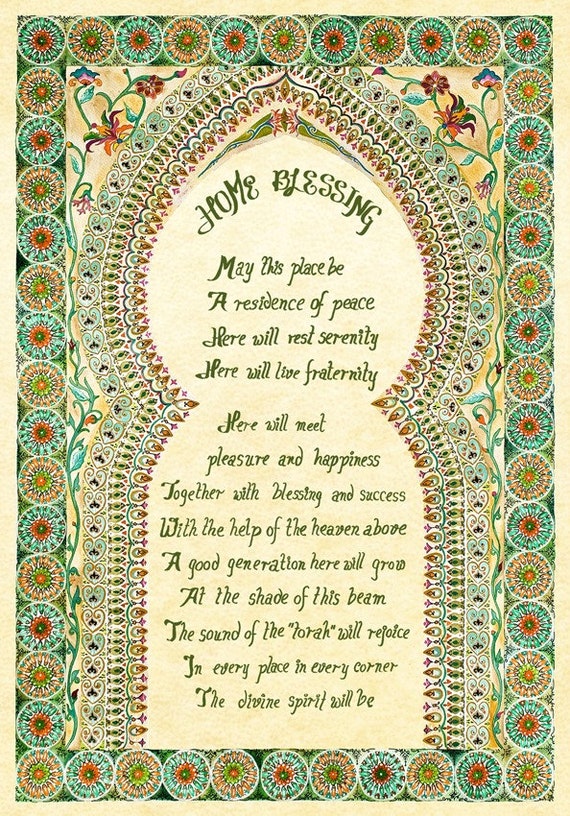 HOME BLESSING
May this place be
A residence of peace
Here will rest serenity
Here will live fraternity
Here will meet
pleasure and happiness
Together with blessing and success
With the help of the heaven above
A good generation here will grow
At the shade of this beam
The sound of the "torah" will rejoice
In every place in every corner
The divine spirit will be